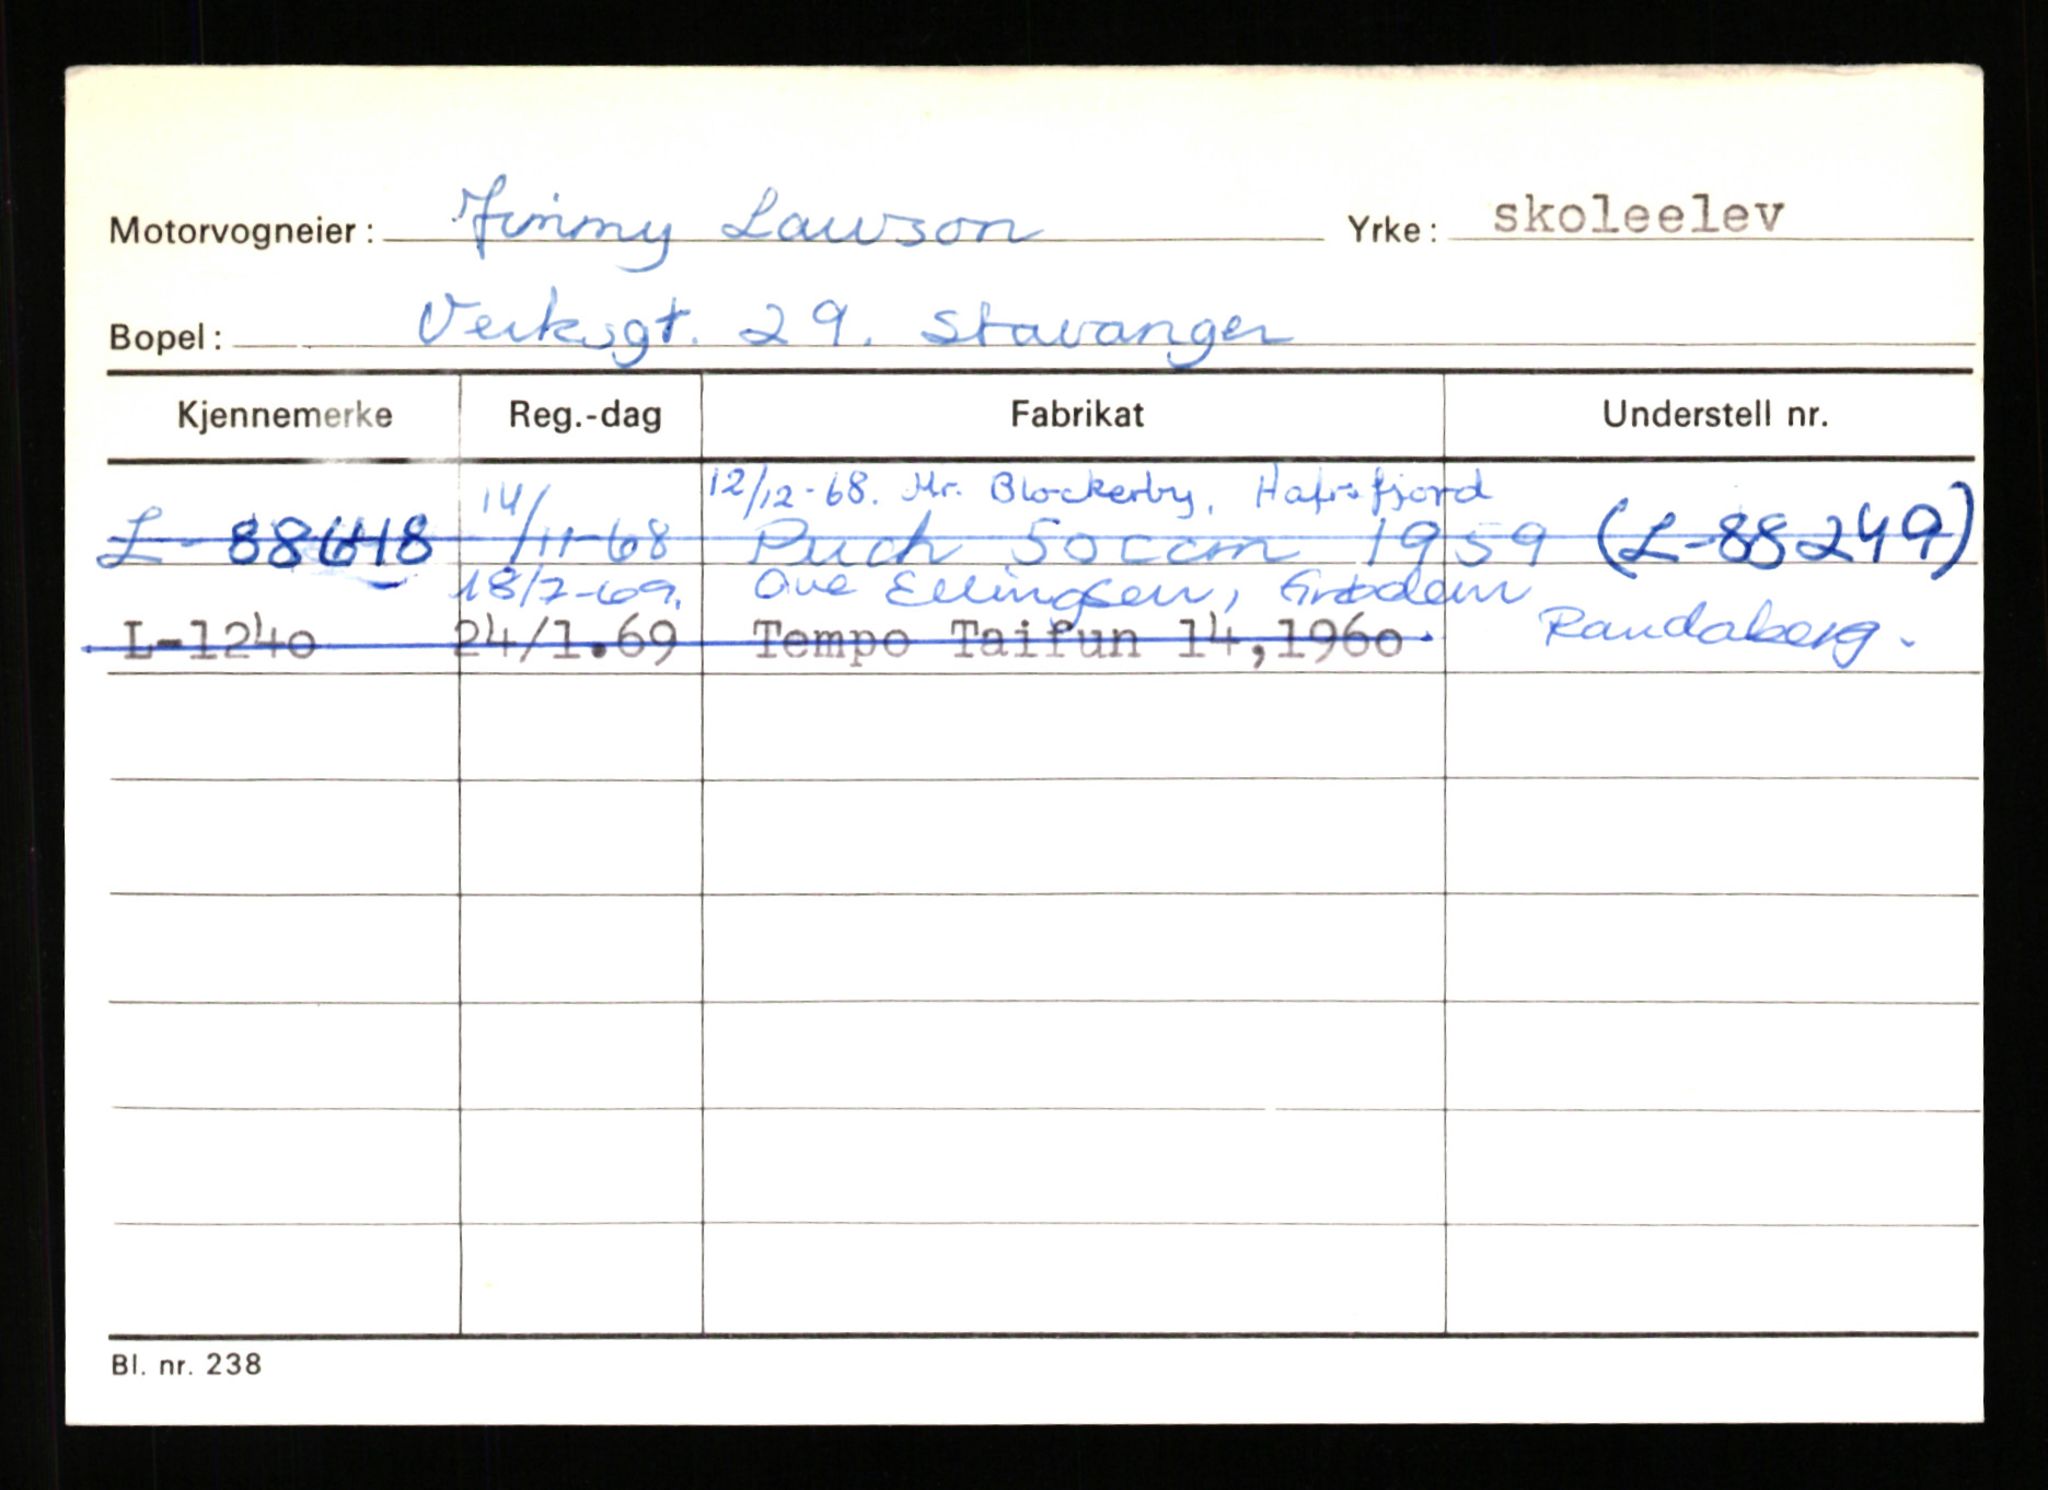 Motorvogneier: Jimmy Lawson Yrke: skoleelev
Bopel: Verksgt. 29. Stavanger
Kjennemerke Reg.-dag Fabrikat Understell nr.
12/12-68. Mr. Blockerby, Hafrsfjord
L-88618 14/11-68 Puch 50 ccm 1959 (L-88249)
18/7-69. Ove Ellingsen, Grødem
Randaberg.
L-1240 24/1.69 Tempo Taifun 14,1960
Bl. nr. 238